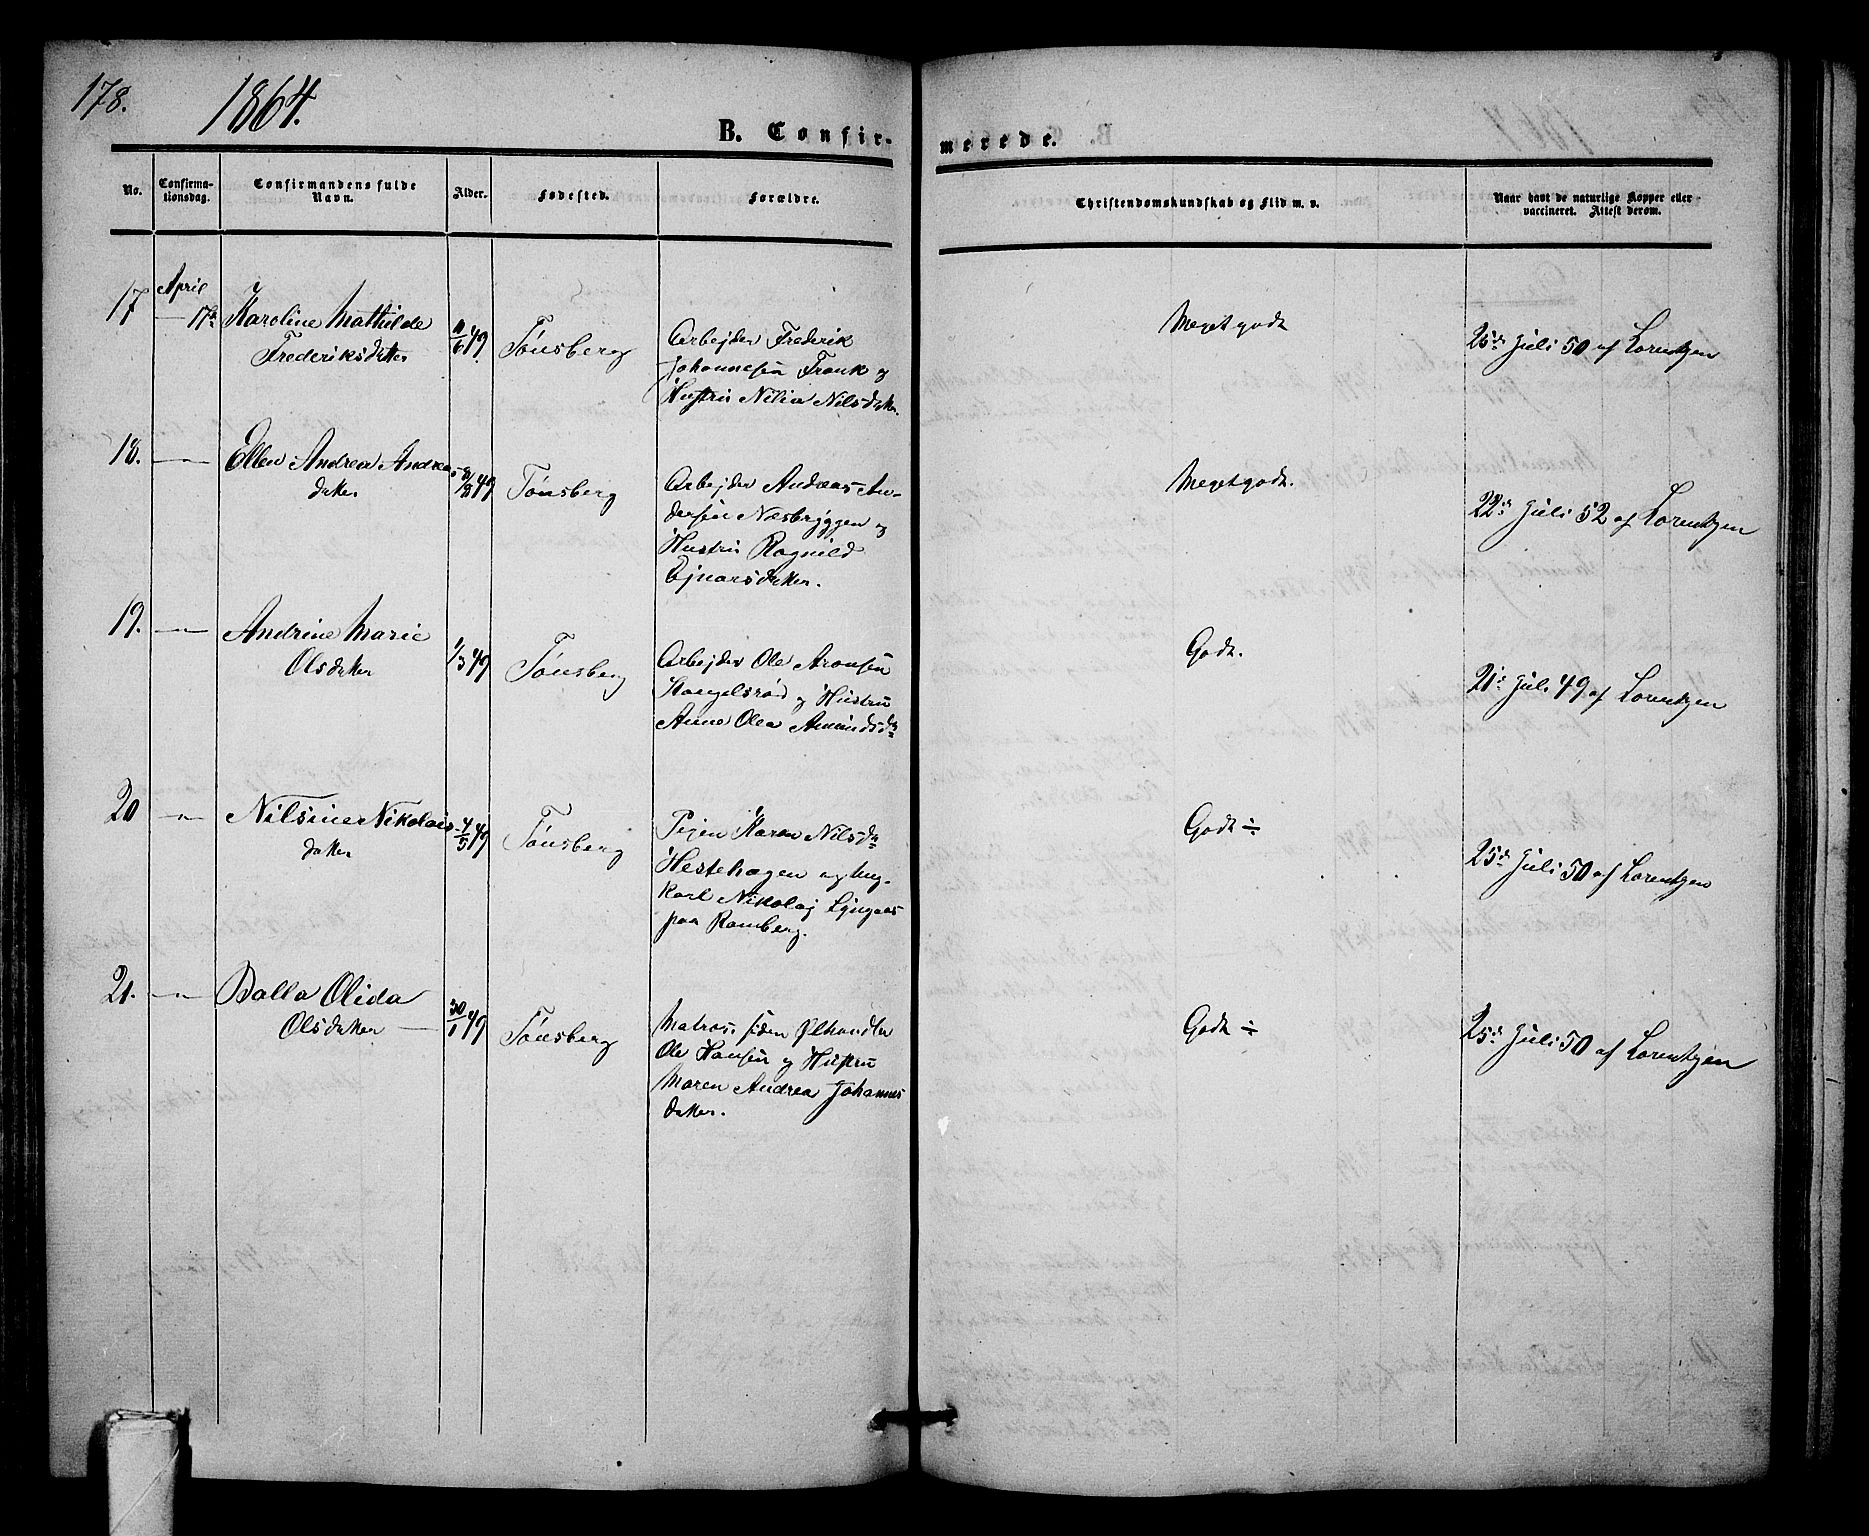 178.
1864.
B. Confir-
merede.
No.
Confirma-
tionsdag.
Confirmandens fulde
Navn.
Alder.
Fødested.
Forældre.
Christendomskundskab og Flid m. v.
Naar havt de naturlige Kopper eller
vaccineret. Attest derom.
April
17 — 17de Karoline Mathilde
Frederiksdatter
11/6 49 Tønsberg
Arbejder Frederik
Johannesen Frank og
Hustru Nilia Nilsdatter
Meget godt
25de Juli 50 af Lorentzen
18. —„— Ellen Andrea Andreas
datter
49 Tønsberg
Arbejder Andreas An-
dersen Næsbryggen og
Hustru Ragnild
Ejnarsdatter.
Meget godt.
22de Juli 52 af Lorentzen
19. —„— Andrine Marie
Olsdatter
1/3 49 Tønsberg
Arbejder Ole Aronsen
Stangelsrød og Hustru
Anne Olea Amundsdr
Godt.
21de Juli 49 af Lorentzen
20 —„— Nilsine Nikolais
datter
4/5 49 Tønsberg
Pigen Karen Nilsdr
Hestehagen og Ung-
karl Nikolaj Lyngaas
paa Ramberg.
Godt ÷
25de Juli 50 af Lorentzen
21. —„— Balla Olida
Olsdatter —
30/1 49 Tønsberg
Matros, siden Ølhandler
Ole Hansen og Hustru
Maren Andrea Johannes
datter.
Godt ÷
25de Juli 50 af Lorentzen